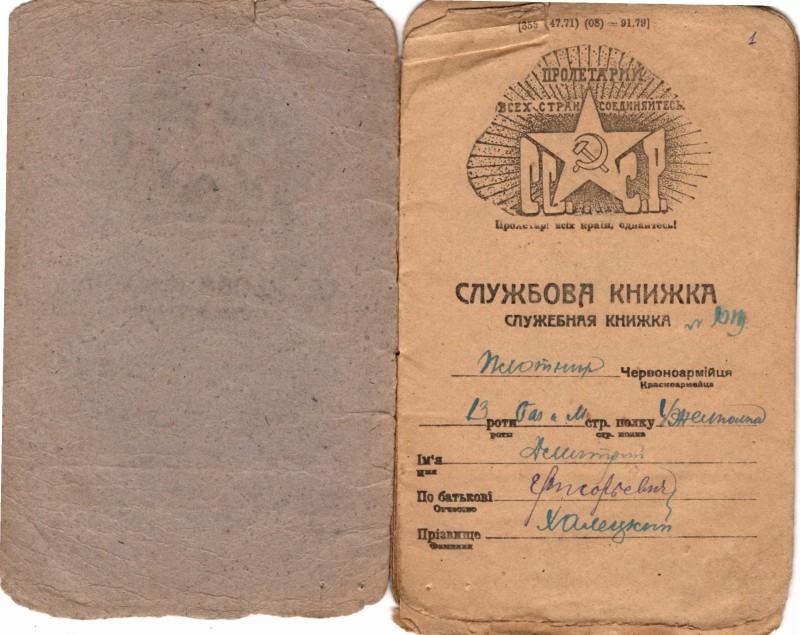 [355 (47.71) (08) — 91.79]
1
ПРОЛЕТАРИИ
ВСЕХ СТРАН СОЕДИНЯЙТЕСЬ
СС.С.Р.
Пролетарі всіх країн, єднайтесь!
СЛУЖБОВА КНИЖКА
СЛУЖЕБНАЯ КНИЖКА №
Плотник Червоноармійця
Красноармейца
13 роти стр. полку
роты стр. полка
Ім'я Дмитрий
Имя
По батькові Григорьевич
Отчество
Прізвище Халецкий
Фамилия